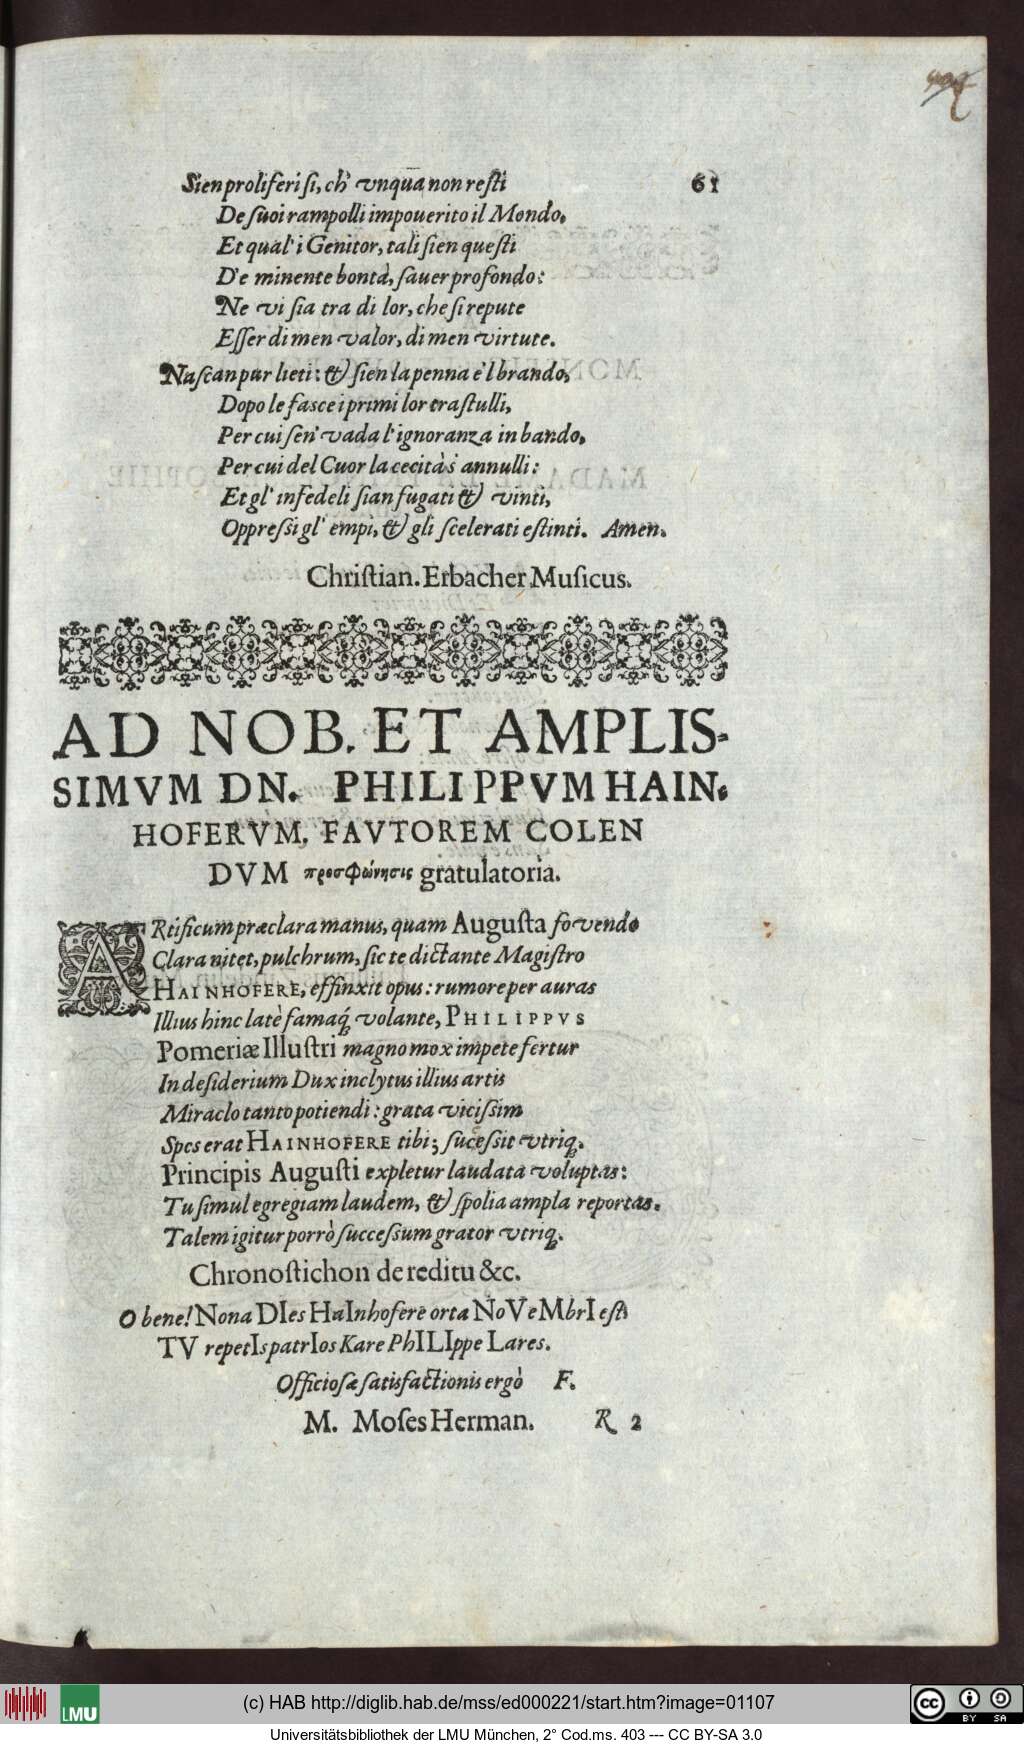 Sien proliferi sì, ch' vnqua non resti 61
De suoi rampolli impouerito il Mondo.
Et qual' i Genitor, tali sien questi
D'e minente bontà, sauer profondo:
Ne vi sia tra di lor, che si repute
Esser di men valor, di men virtute.
Nascan pur lieti: & sien la penna e'l brando,
Dopo le fasce i primi lor trastulli,
Per cui sen' vada l'ignoranza in bando,
Per cui del Cuor la cecità s'annulli:
Et gl' infedeli sian fugati & vinti,
Oppressi gl' empi, & gli scelerati estinti. Amen.
Christian. Erbacher Musicus.
AD NOB. ET AMPLIS-
SIMVM DN. PHILIPPVM HAIN-
HOFERVM, FAVTOREM COLEN
DVM προσφώνησις gratulatoria.
ARtificum præclara manus, quam Augusta fovendo
Clara nitet, pulchrum, sic te dictante Magistro
HAINHOFERE, effinxit opus: rumore per auras
Illius hinc latè famaq́ volante, PHILIPPVS
Pomeriæ Illustri magno mox impete fertur
In desiderium Dux inclytus illius artis
Miraclo tanto potiendi: grata vicissim
Spes erat HAINHOFERE tibi; sucessit vtriq.
Principis Augusti expletur laudata voluptas:
Tu simul egregiam laudem, & spolia ampla reportas.
Talem igitur porrò successum grator vtriq.
Chronostichon de reditu &c.
O bene! Nona DIes HaInhofere orta NoVeMbrI est
TV repetIs patrIos Kare PhILIppe Lares.
Officiosæ satisfactionis ergò F.
M. Moses Herman. R 2
(c) HAB http://diglib.hab.de/mss/ed000221/start.htm?image=01107
LMU
cc BY SA
Universitätsbibliothek der LMU München, 2° Cod.ms. 403 --- CC BY-SA 3.0